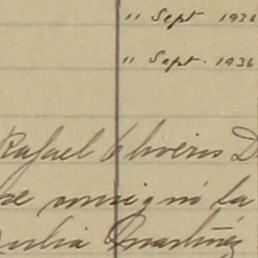 11 Sept 1936
11 Sept. 1936
Rafael Oliveris D
se consignó la
Julia Martínez